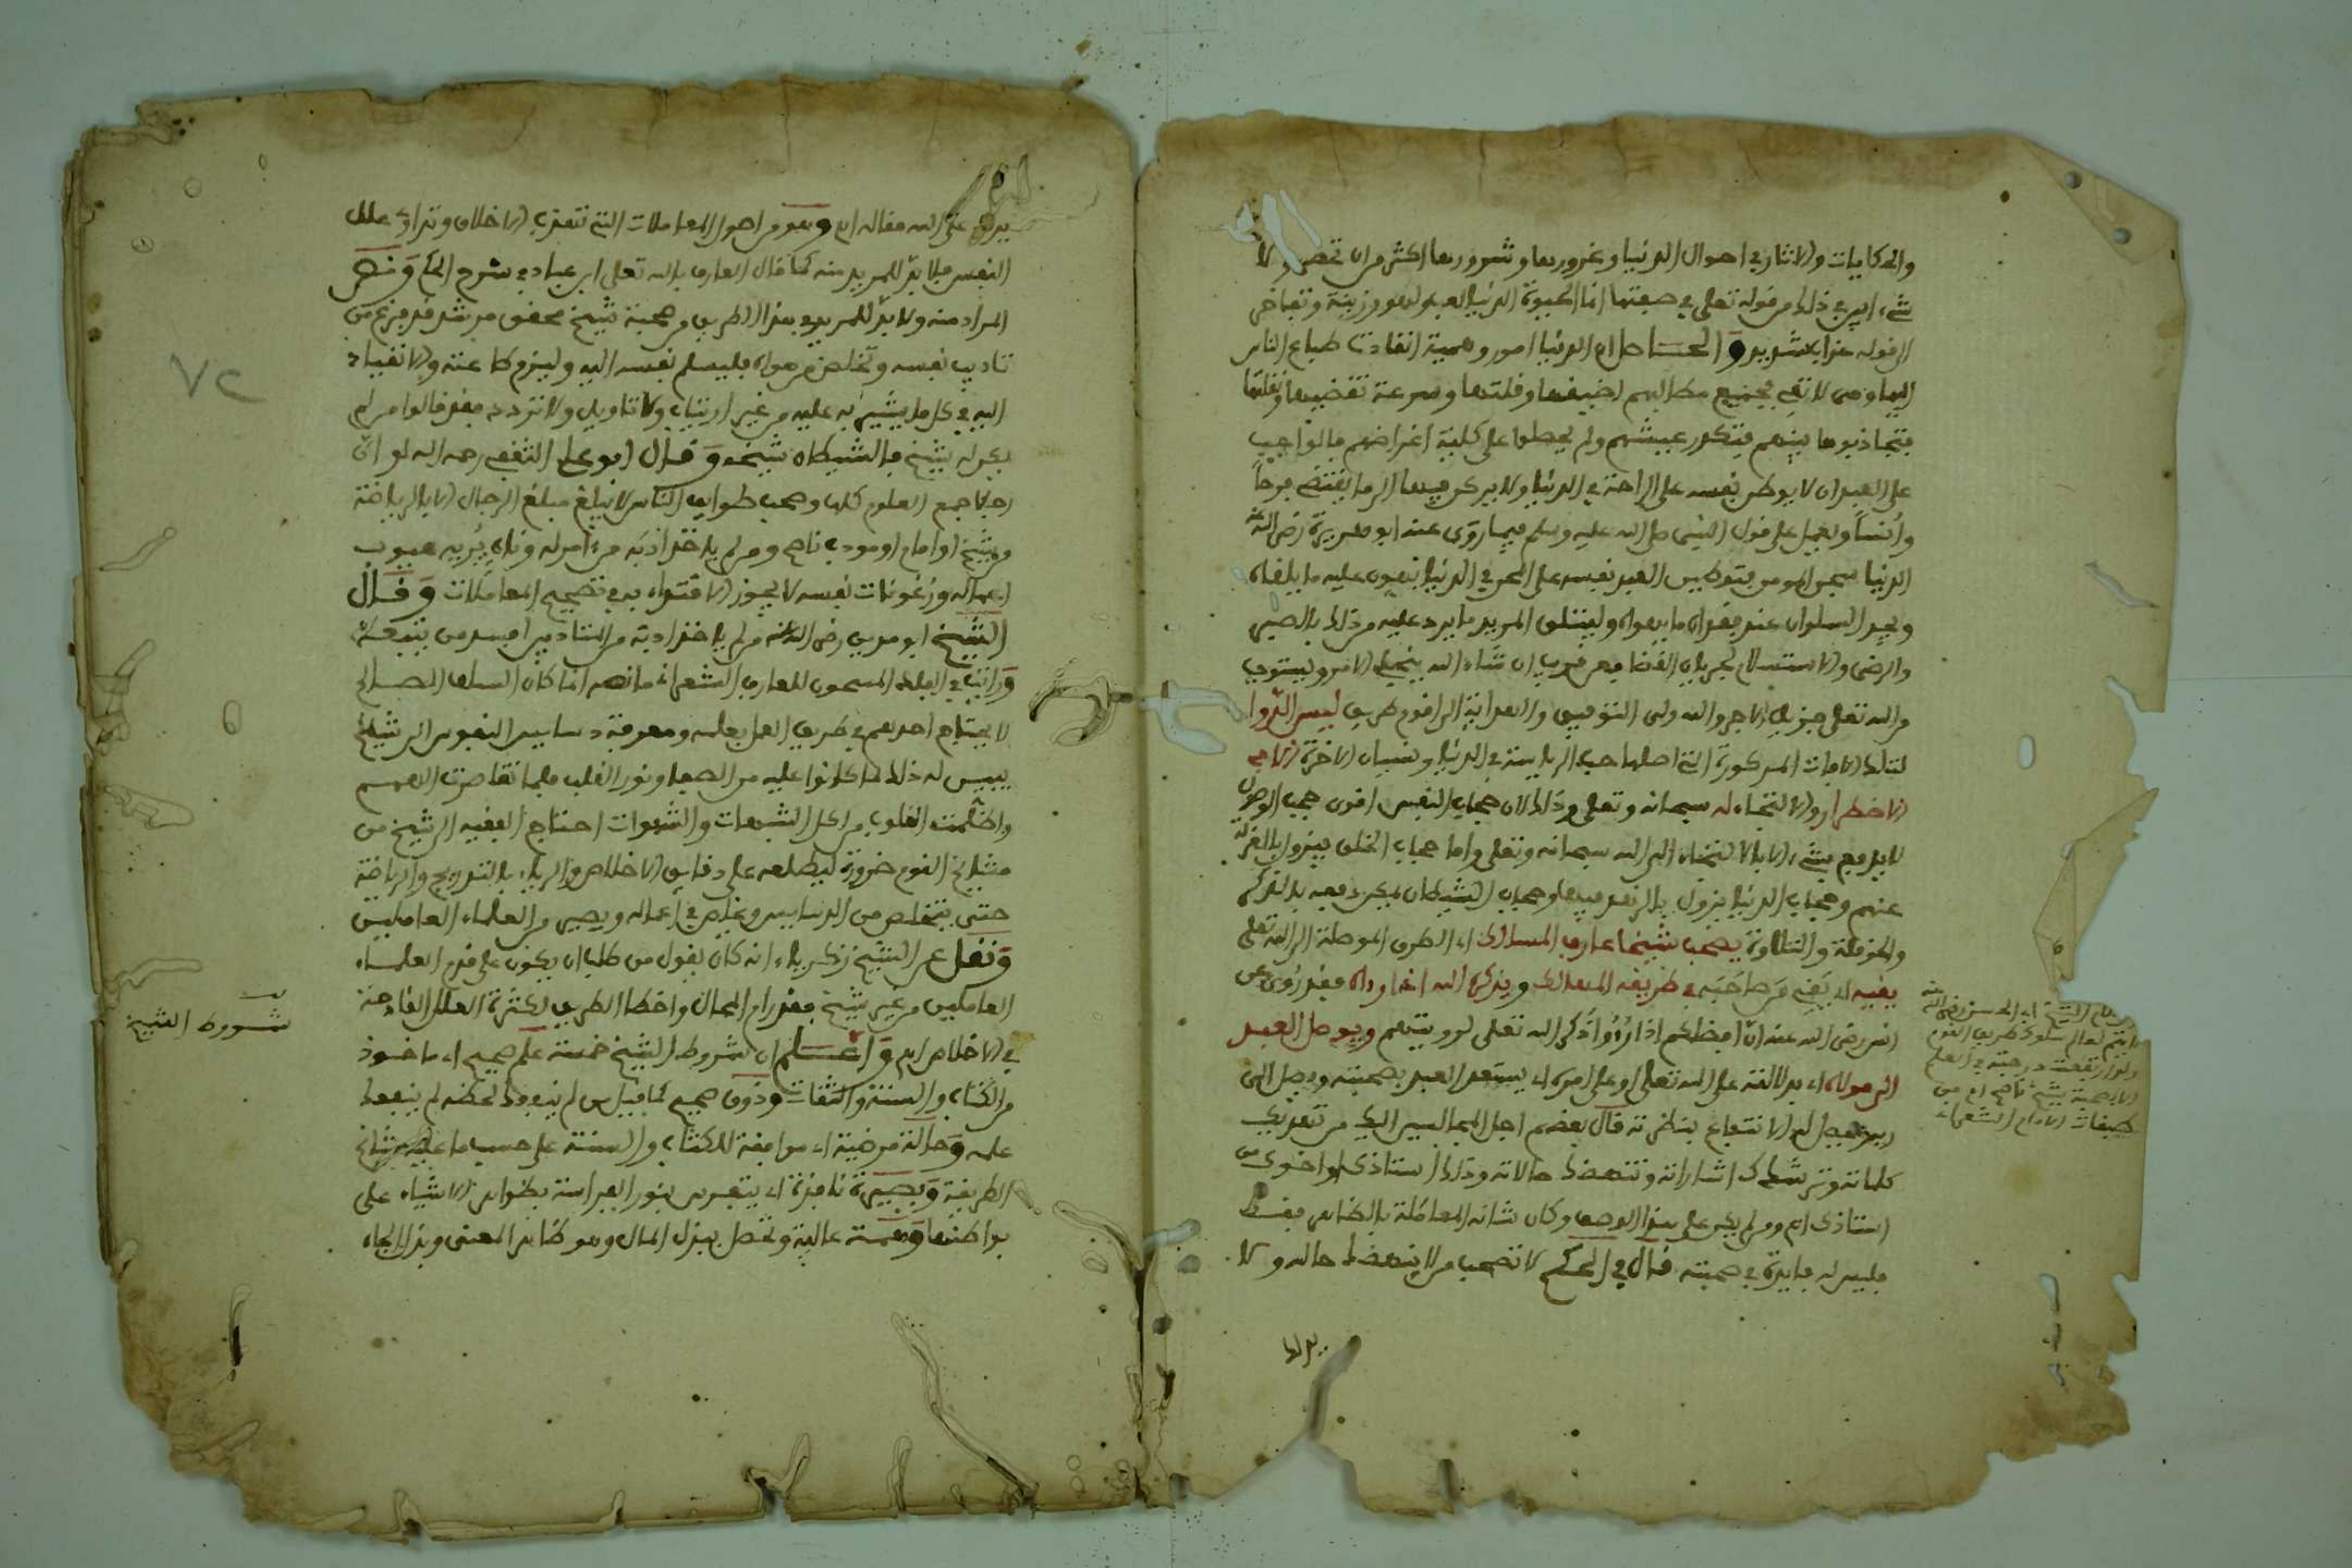 والحكايات والاثار في احوال الدنيا وغرورها وشرورها اكثر من ان تحصر ولا
شيء ابين في ذلك من قوله تعلى في صفتها انما الحيوة الدنيا لعب ولهو وزينة وتفاخر
الى قوله عذاب شديد والحاصل ان الدنيا امور وهمية انقادت طباع الناس
اليها وهي لا تفي بجميع مطالبهم لضيقها وقلتها وسرعة تقضيها وتقلبها
فتجاذبوها بينهم فتكدر عيشهم ولم يحصلوا على كلية اغراضهم فالواجب
على العبد ان لا يوطن نفسه على الراحة في الدنيا ولا يركن فيها الى ما يقتضي فرحاً
وانساً ويعمل على قول النبى صلى الله عليه وسلم فيما روى عنه ابو هريرة رضى الله عنه
الدنيا سجن المومن فتوطين العبد نفسه على المحن في الدنيا يهون عليه ما يلقاه
ويجد السلوان عند فقدان ما يهواه وليتلق المريد ما يرد عليه من ذلك بالصبر
والرضى والاستسلام لجريان القضا فعن قريب ان شاء الله ينجلي الامر ويستوجب
من الله تعلى جزيل الاجر والله ولى التوفيق والهداية الى اقوم طريق ليس الدوا
لتلك الافات المذكورة التي اصلها حب الرياسة في الدنيا ونسيان الاخرة الا في
الاضطرار والالتجاء له سبحانه وتعلى وذلك لان حجاب النفس اقوى حجب الوصول
لا يدفع بشيء الا بالالتجاء الى الله سبحانه وتعلى واما حجاب الخلق فيزول بالعزلة
عنهم وحجاب الدنيا يزول بالزهد فيها وحجاب الشيطان يمكن دفعه بالذكر
والحوقلة والتلاوة يصحب شيخا عارف المسالك اي الطرق الموصلة الى الله تعلى
يقيه اي يقي من صاحبه في طريقه المهالك ويذكر الله اذا رءاه فقد روى عن
انس رضى الله عنه ان افضلكم اذا رؤوا ذكر الله تعلى لرويتهم ويوصل العبد
الى مولاه اي بدلالته على الله تعلى او على امره اي يستعد العبد بصحبته ويصل الى
ربه ويحصل له الانتفاع بنظرته قال بعضهم اجل المجالسين اليك من تهذبك
كلماته وترشدك اشاراته وتنهضك حالاته وذلك استاذى او اخوى من
استاذى اه ومن لم يكن على هذا الوصف وكان شانه المعاملة بالظاهر فقط
فليس له فايدة في صحبته قال في الحكم لا تصحب من لا ينهضك حاله ولا
يدلك
كلام الشيخ ابي الحسن رضى الله عنه
لا يتم لعالم سلوك طريق القوم
ولو ارتفعت درجته في العلم
الا بصحبة شيخ ناصح اه من
طبقات الامام الشعراني
٧٢
يدلك على الله مقاله اه وبعد فاصول المعاملات التي تهذب الاخلاق وتداوى علل
النفس فلا بد للمريد منه كما قال العارف بالله تعلى ابن عباد في شرح الحكم ونص
المراد منه ولا بد للمريد في هذا الطريق من صحبة شيخ محقق مرشد قد فرغ من
تاديب نفسه وتخلص من هواه فليسلم نفسه اليه وليلزم طاعته والانقياد
اليه في كل ما يشير به عليه من غير ارتياب ولا تاويل ولا تردد فقد قالوا من لم
يكن له شيخ فالشيطان شيخه وقال ابو علي الثقفي رحمه الله لو ان
رجلا جمع العلوم كلها وصحب طوايف الناس لا يبلغ مبلغ الرجال الا بالرياضة
من شيخ او امام او مودب ناصح ومن لم ياخذ ادبه من ءامر له وناه يريه عيوب
اعماله ورعونات نفسه لا يجوز الاقتداء به في تصحيح المعاملات وقال
الشيخ ابو مدين رضى الله عنه من لم ياخذ ادبه من المتادبين افسد من يتبعه
ورايت في الفلك المشحون للعارف الشعراني ما نصه انما كان السلف الصالح
لا يحتاج احدهم في طريق العمل بعلمه ومعرفة دسايس النفوس الى شيخ
يبين له ذلك لما كانوا عليه من الصفا ونور القلب فلما تقاصرت الهمم
واظلمت القلوب من اكل الشبهات والشهوات احتاج الفقيه الى شيخ من
مشايخ القوم ضرورة ليطلعه على دقايق الاخلاص والرياء بالتدريج والرياضة
حتى يتخلص من الدسايس ويخلص في اعماله ويصير من العلماء العاملين
ونقل عن الشيخ زكرياء انه كان يقول من طلب ان يكون على قدم العلماء
العاملين من غير شيخ فقد رام المحال واخطا الطريق لكثرة العلل القادحة
في الاخلاص اه واعلم ان شروط الشيخ خمسة علم صحيح اي ماخوذ
من الكتاب والسنة والثقات وذوق صحيح كما قيل من لم ينفعك لحظه لم ينفعك
علمه وحالة مرضية اي موافقة للكتاب والسنة على حسب ما عليه مشايخ
الطريقة وبصيرة نافذة اي يتفرس بنور الفراسة بظواهر الاشياء على
بواطنها وهمة عالية وتحصل ببذل المال وهو ظاهر المعنى وبذل الجاه
شروط الشيخ